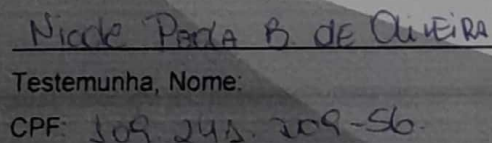 Nicole Paola B. de Oliveira
Testemunha, Nome:
CPF: 109.241.209-56.